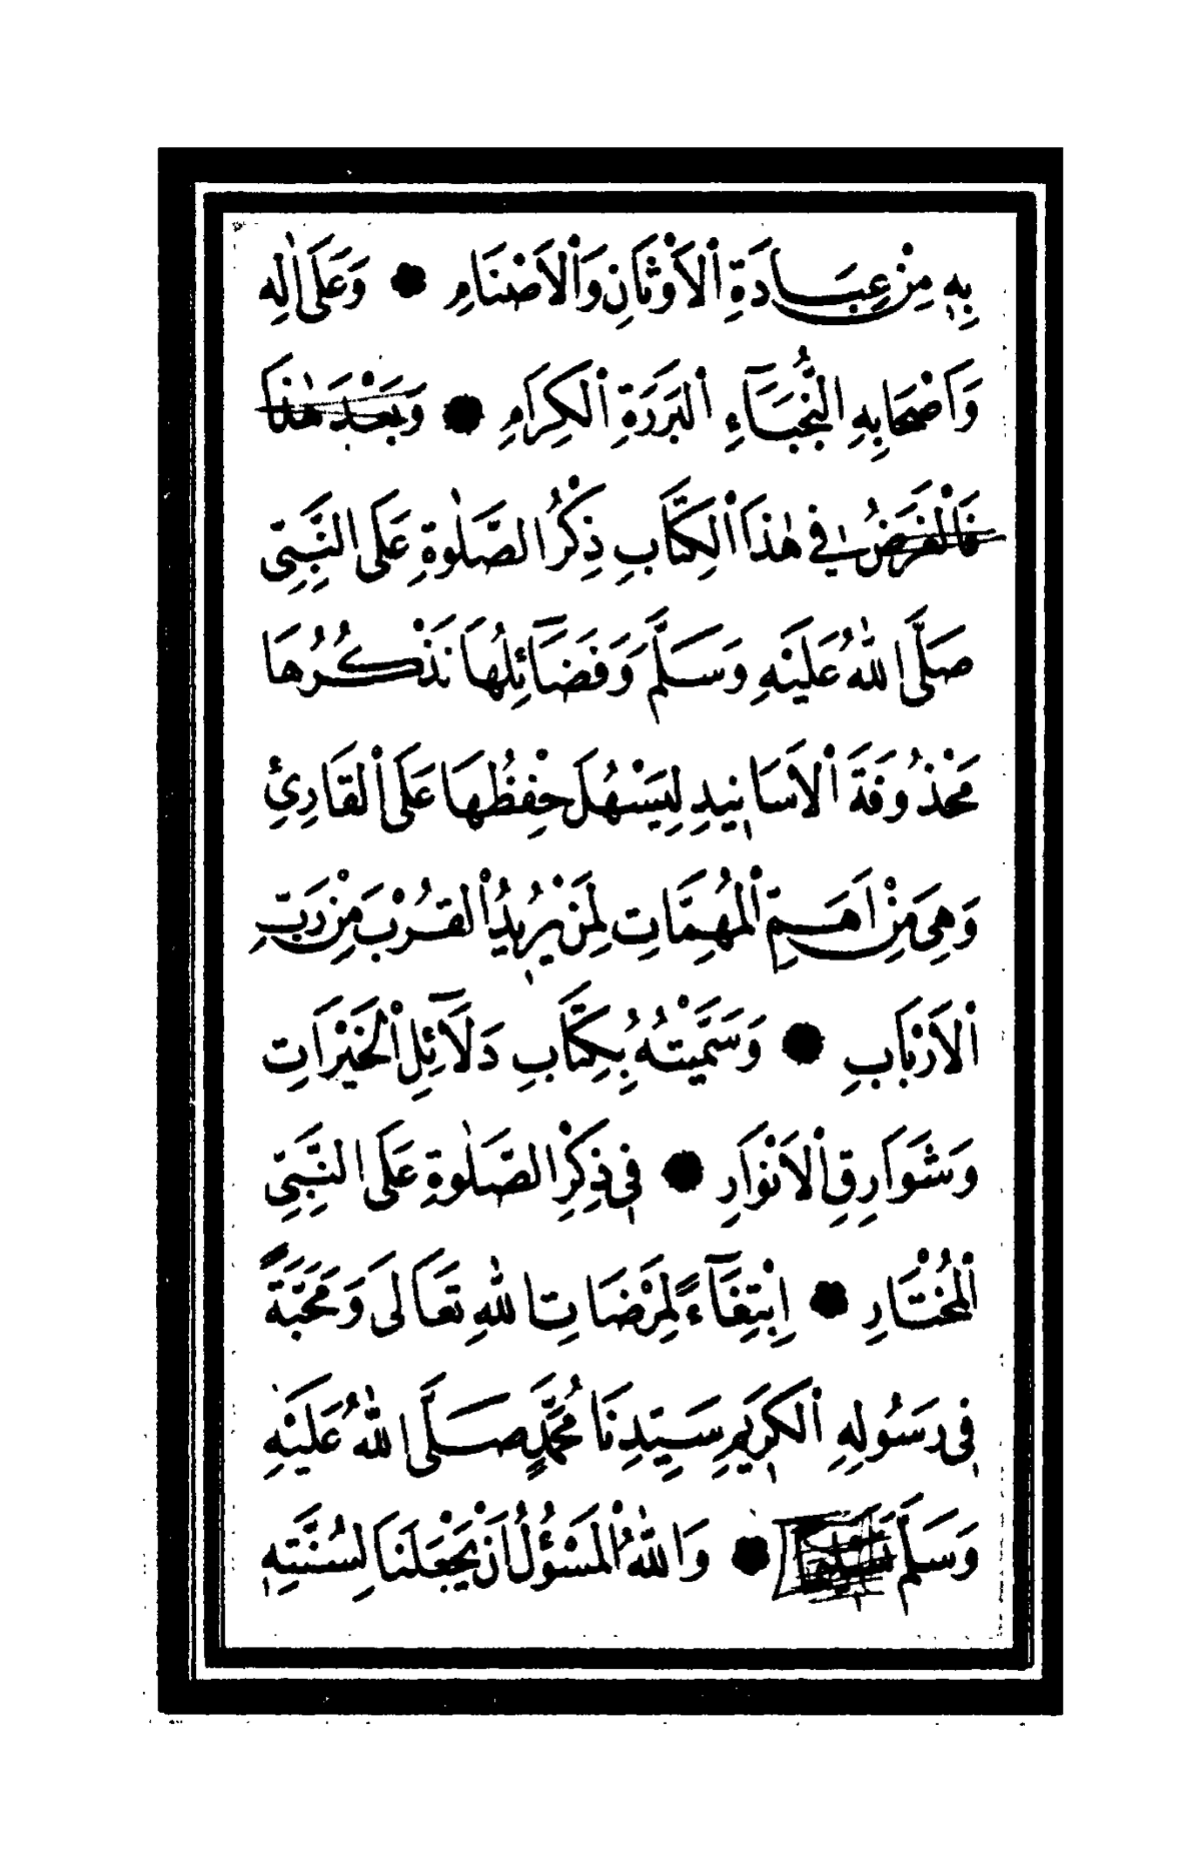 بِهِ مِنْ عِبَادَةِ الْاَوْثَانِ وَالْاَصْنَامِ ● وَعَلَى اٰلِهِ
وَاَصْحَابِهِ النُّجَبَآءِ الْبَرَرَةِ الْكِرَامِ ● وَبَعْدَ هٰذَا
فَالْغَرَضُ فِي هٰذَا الْكِتَابِ ذِكْرُ الصَّلٰوةِ عَلَى النَّبِيِّ
صَلَّى اللهُ عَلَيْهِ وَسَلَّمَ وَفَضَآئِلُهَا نَذْكُرُهَا
مَحْذُوفَةَ الْاَسَانِيدِ لِيَسْهُلَ حِفْظُهَا عَلَى الْقَارِئِ
وَهِيَ مِنْ اَهَمِّ الْمُهِمَّاتِ لِمَنْ يُرِيدُ الْقُرْبَ مِنْ رَبِّ
الْاَرْبَابِ ● وَسَمَّيْتُهُ بِكِتَابِ دَلَآئِلِ الْخَيْرَاتِ
وَشَوَارِقِ الْاَنْوَارِ ● فِي ذِكْرِ الصَّلٰوةِ عَلَى النَّبِيِّ
الْمُخْتَارِ ● اِبْتِغَآءً لِمَرْضَاتِ اللهِ تَعَالَى وَمَحَبَّةً
فِي رَسُولِهِ الْكَرِيمِ سَيِّدِنَا مُحَمَّدٍ صَلَّى اللهُ عَلَيْهِ
وَسَلَّمَ ● وَاللهُ الْمَسْؤُلُ اَنْ يَجْعَلَنَا لِسُنَّتِهِ